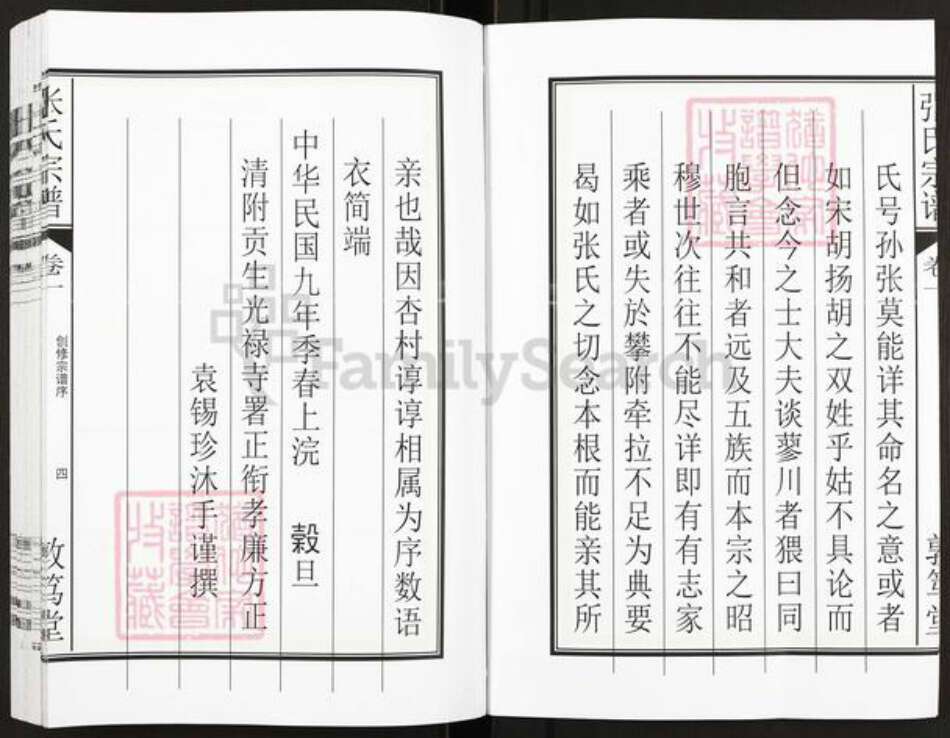 张氏宗谱
卷一
敦笃堂
氏号孙张莫能详其命名之意或者
如宋胡扬胡之双姓乎姑不具论而
但念今之士大夫谈蓼川者猥曰同
胞言共和者远及五族而本宗之昭
穆世次往往不能尽详即有有志家
乘者或失於攀附牵拉不足为典要
曷如张氏之切念本根而能亲其所
亲也哉因杏村谆谆相属为序数语
衣简端
中华民国九年季春上浣 榖旦
清附贡生光禄寺署正衔孝廉方正
袁锡珍沐手谨撰
张氏宗谱
卷一
创修宗谱序
四
敦笃堂
FamilySearch